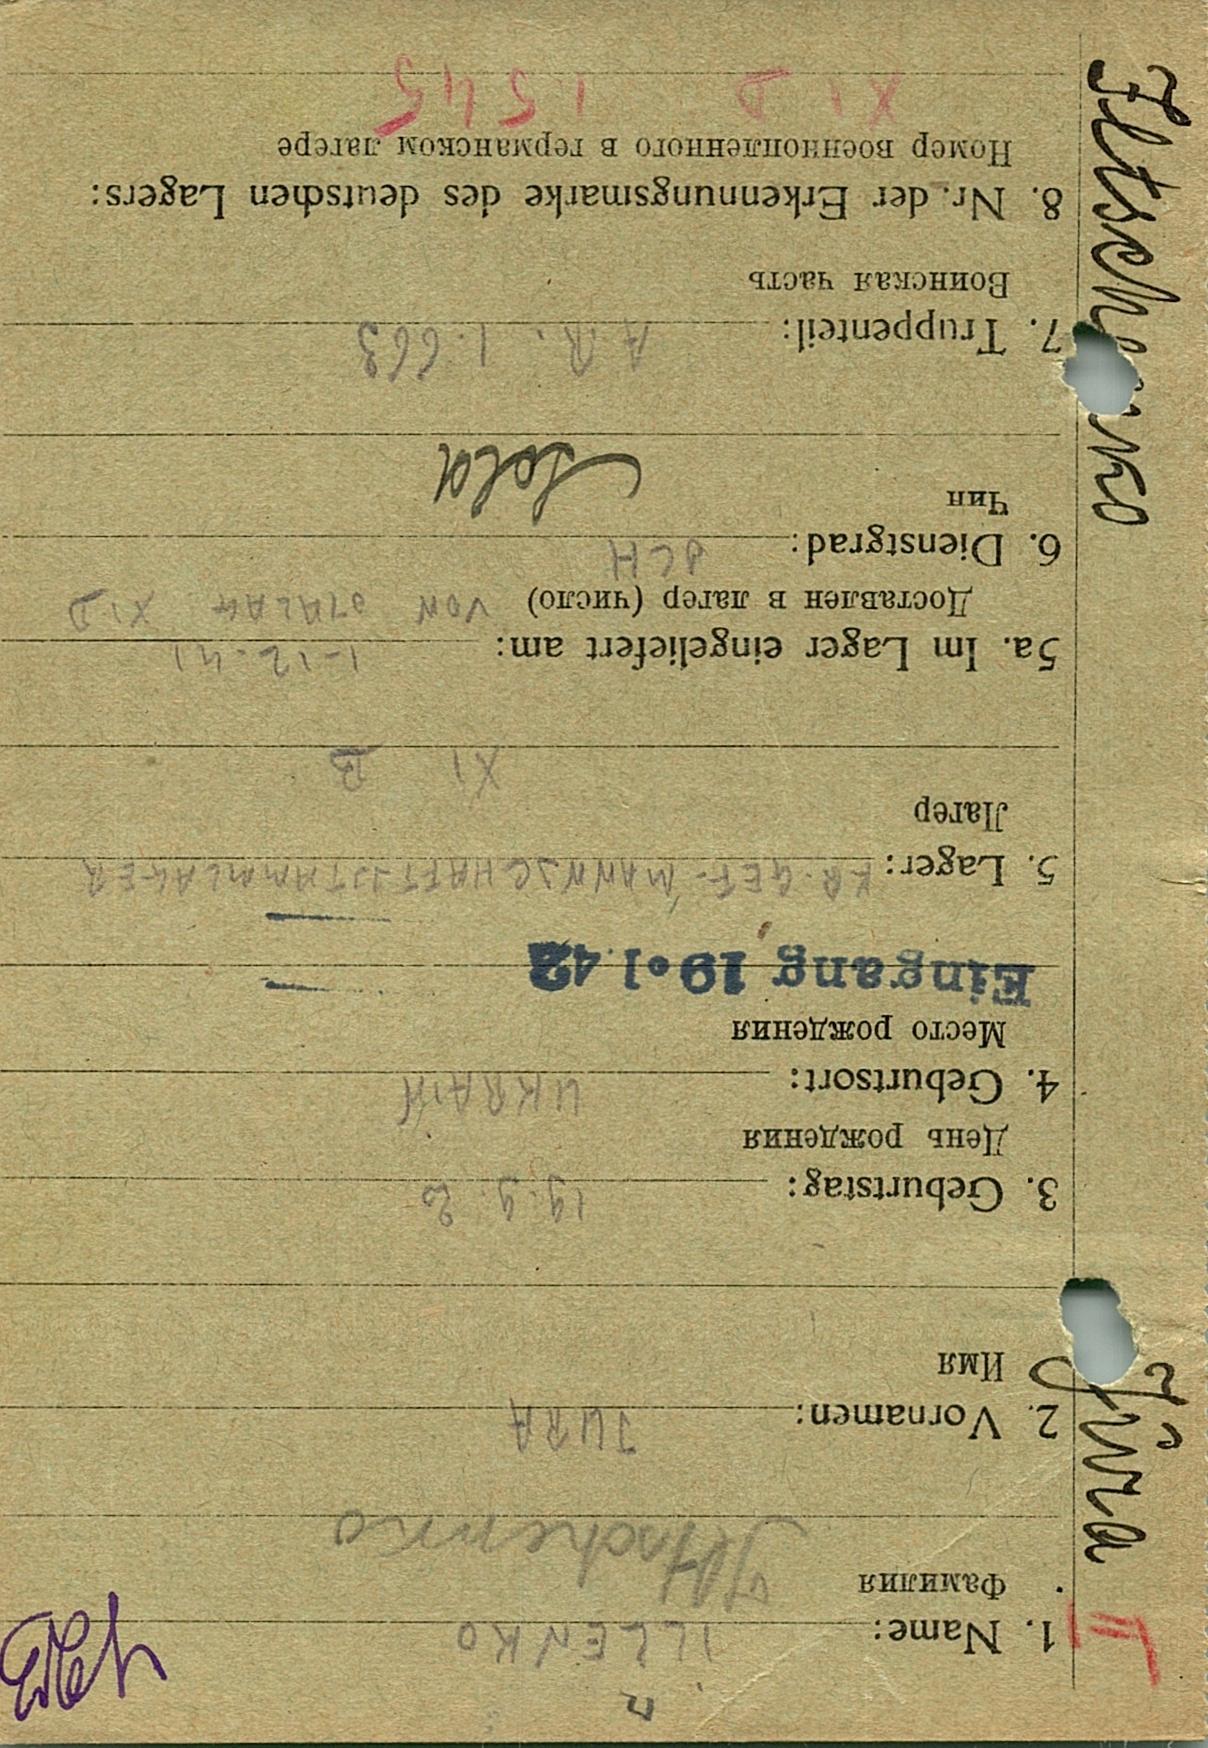 1. Name: ILLENKO
Фамилия Iltschenko
2. Vornamen: JURA
Имя
3. Geburtstag: 19.9.20
День рождения
4. Geburtsort: UKRAIN
Место рождения
Eingang 19.1.42
5. Lager: KR.GEF-MANNSCHAFTSSTAMMLAGER
Лагер
XI B
5a. Im Lager eingeliefert am: 1-12-41
Доставлен в лагер (число) VON STALAG XI D
6. Dienstgrad:
Чин
Sold
7. Truppenteil: A.R. 1.663
Воинская часть
8. Nr. der Erkennungsmarke des deutschen Lagers:
Номер военнопленного в германском лагере
XI D 1545
Iltschenko Jura